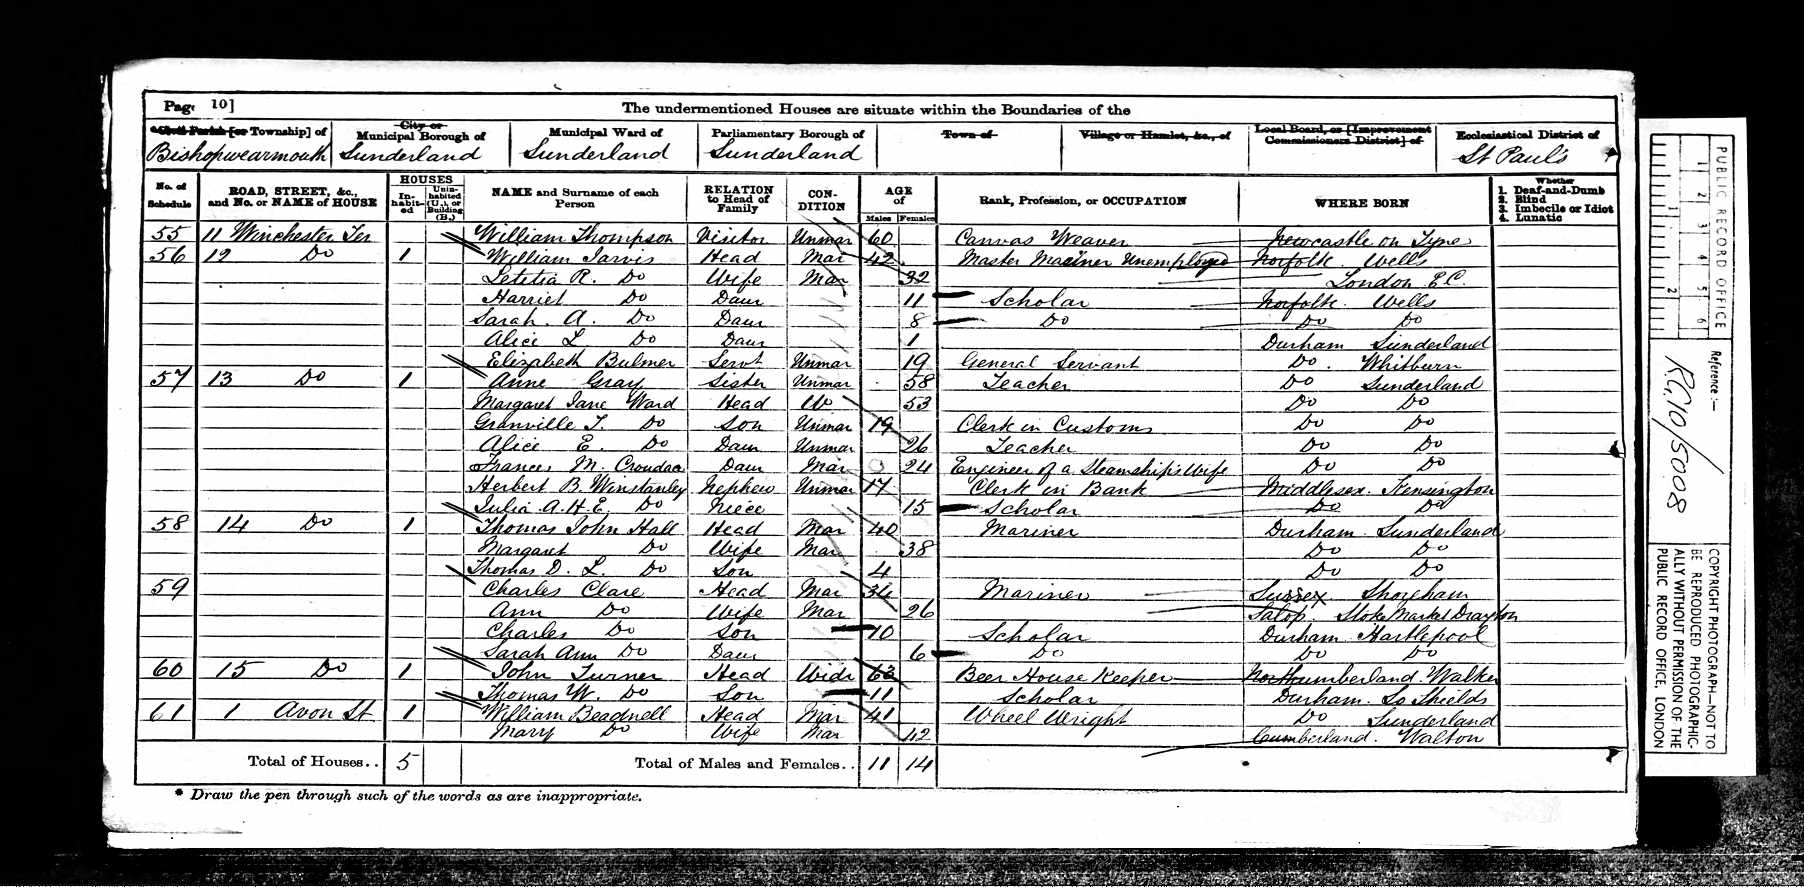 Page 10]
The undermentioned Houses are situate within the Boundaries of the
Civil Parish [or Township] of
City or Municipal Borough of
Municipal Ward of
Parliamentary Borough of
Town of
Village or Hamlet, &c., of
Local Board, or [Improvement Commissioners District] of
Ecclesiastical District of
Bishopwearmouth Sunderland Sunderland Sunderland St Paul's
No. of Schedule
ROAD, STREET, &c., and No. or NAME of HOUSE
HOUSES
In-habit-ed
Unin-habited (U.), or Building (B.)
NAME and Surname of each Person
RELATION to Head of Family
CON-DITION
AGE of
Males Females
Rank, Profession, or OCCUPATION
WHERE BORN
Whether
1. Deaf-and-Dumb
2. Blind
3. Imbecile or Idiot
4. Lunatic
55 11 Winchester Ter William Thompson Visitor Unmar 60 Canvas Weaver Newcastle on Tyne
56 12 Do 1 William Jarvis Head Mar 42 Master Mariner Unemployed Norfolk. Wells
Letitia R. Do Wife Mar 32 London E.C.
Harriet Do Daur 11 Scholar Norfolk. Wells
Sarah. A. Do Daur 8 Do Do Do
Alice L Do Daur 1 Durham Sunderland
Elizabeth Bulmer Servt Unmar 19 General Servant Do. Whitburn
57 13 Do 1 Anne Gray Sister Unmar 58 Teacher Do Sunderland
Margaret Jane Ward Head W 53 Do Do
Granville T. Do Son Unmar 19 Clerk in Customs Do Do
Alice E. Do Daur Unmar 26 Teacher Do Do
Frances M. Croudace Daur Mar 24 Engineer of a Steamship's Wife Do Do
Herbert B. Winstanley Nephew Unmar 17 Clerk in Bank Middlesex. Kensington
Julia A.H.E. Do Niece 15 Scholar Do Do
58 14 Do 1 Thomas John Hall Head Mar 40 Mariner Durham. Sunderland
Margaret Do Wife Mar 38 Do Do
Thomas D. L. Do Son 4 Do Do
59 Charles Clare Head Mar 34 Mariner Sussex. Shoreham
Ann Do Wife Mar 26 Salop. Stoke Market Drayton
Charles Do Son 10 Scholar Durham Hartlepool
Sarah Ann Do Daur 6 Do Do Do
60 15 Do 1 John Turner Head Widr 63 Beer House Keeper Northumberland Walker
Thomas W. Do Son 11 Scholar Durham. So Shields
61 1 Avon St 1 William Beadnell Head Mar 41 Wheel Wright Do Sunderland
Mary Do Wife Mar 42 Cumberland. Walton
Total of Houses.. 5 Total of Males and Females.. 11 14
* Draw the pen through such of the words as are inappropriate.
PUBLIC RECORD OFFICE
1 2 3 4 5 6
1 2
Reference:-
RG10/5008
COPYRIGHT PHOTOGRAPH—NOT TO
BE REPRODUCED PHOTOGRAPHIC-
ALLY WITHOUT PERMISSION OF THE
PUBLIC RECORD OFFICE, LONDON